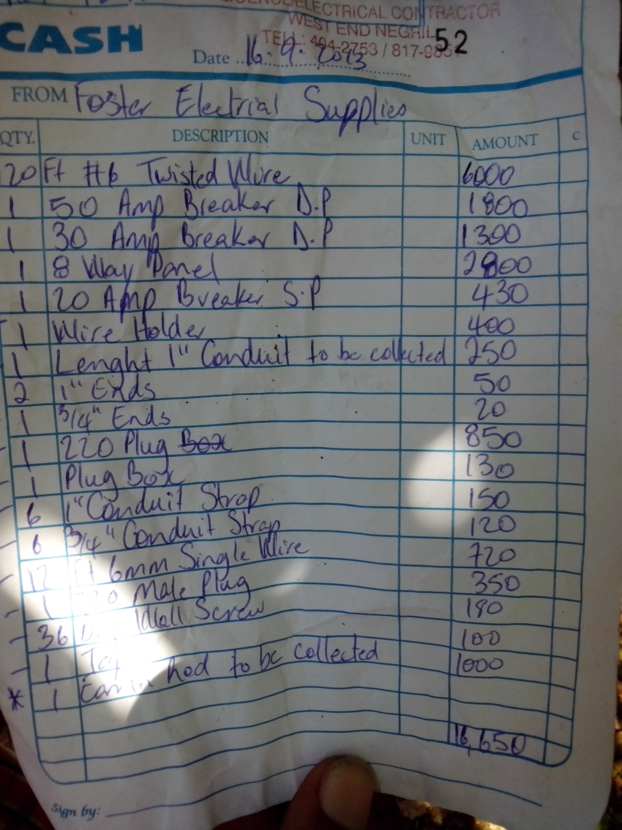 ELECTRICAL CONTRACTOR
WEST END NEGRIL
CASH
TEL: 404-2753 / 817-
52
Date 16.9.2023
FROM Foster Electrial Supplies
QTY. DESCRIPTION UNIT AMOUNT C
20 Ft #6 Twisted Wire 6000
1 50 Amp Breaker D.P 1800
1 30 Amp Breaker D.P 1300
1 8 Way Panel 2800
1 20 Amp Breaker S.P 430
1 Wire Holder 400
1 Lenght 1" Conduit to be collected 250
2 1" Ends 50
1 3/4" Ends 20
1 220 Plug Box 850
1 Plug Box 130
6 1" Conduit Strap 150
6 3/4" Conduit Strap 120
12 Ft 6mm Single Wire 720
1 Male Plug 350
36 Wall Screw 180
1 100
* 1 hod to be collected 1000
16,650
Sign by: